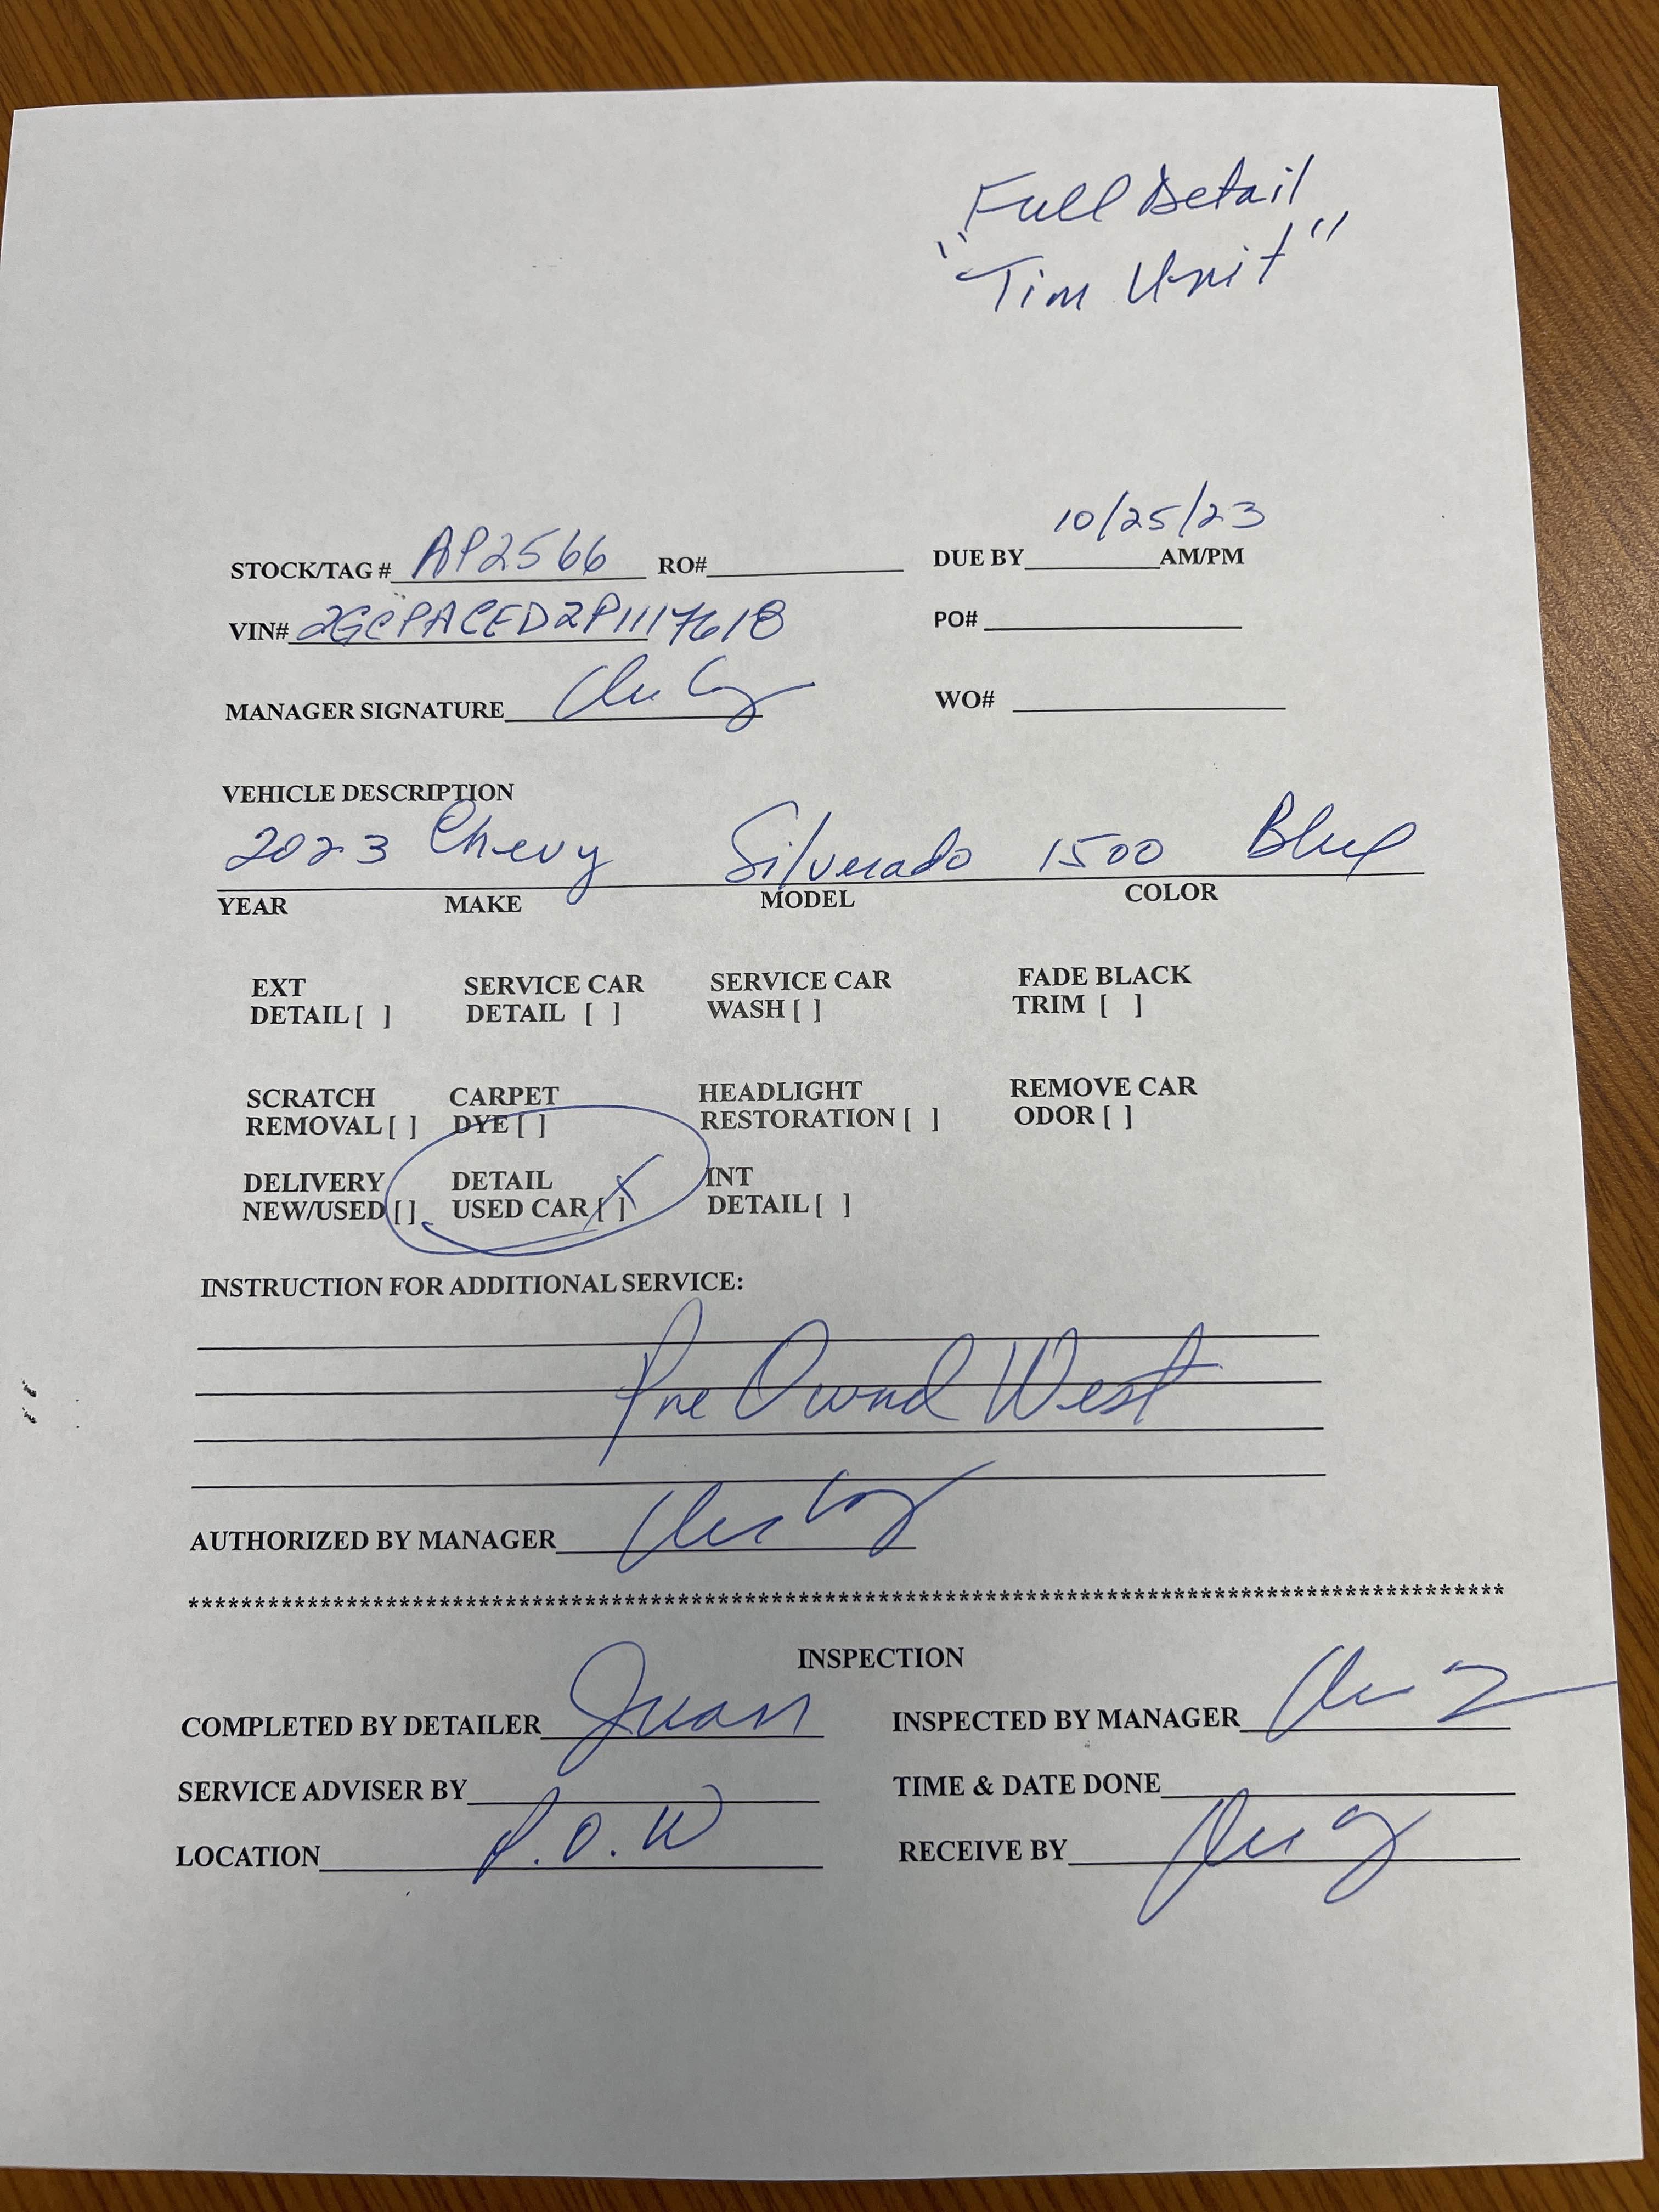 Full Detail
"Tim Unit"
10/25/23
STOCK/TAG # AP2566 RO# DUE BY AM/PM
VIN# 2GCPACED2P1117618 PO#
MANAGER SIGNATURE WO#
VEHICLE DESCRIPTION
2023 Chevy Silverado 1500 Blue
YEAR MAKE MODEL COLOR
EXT SERVICE CAR SERVICE CAR FADE BLACK
DETAIL [ ] DETAIL [ ] WASH [ ] TRIM [ ]
SCRATCH CARPET HEADLIGHT REMOVE CAR
REMOVAL [ ] DYE [ ] RESTORATION [ ] ODOR [ ]
DELIVERY DETAIL INT
NEW/USED [ ] USED CAR [X] DETAIL [ ]
INSTRUCTION FOR ADDITIONAL SERVICE:
Pre Ownd West
AUTHORIZED BY MANAGER
****************************************************************************************************
INSPECTION
COMPLETED BY DETAILER Juan INSPECTED BY MANAGER
SERVICE ADVISER BY TIME & DATE DONE
LOCATION P.O.W RECEIVE BY